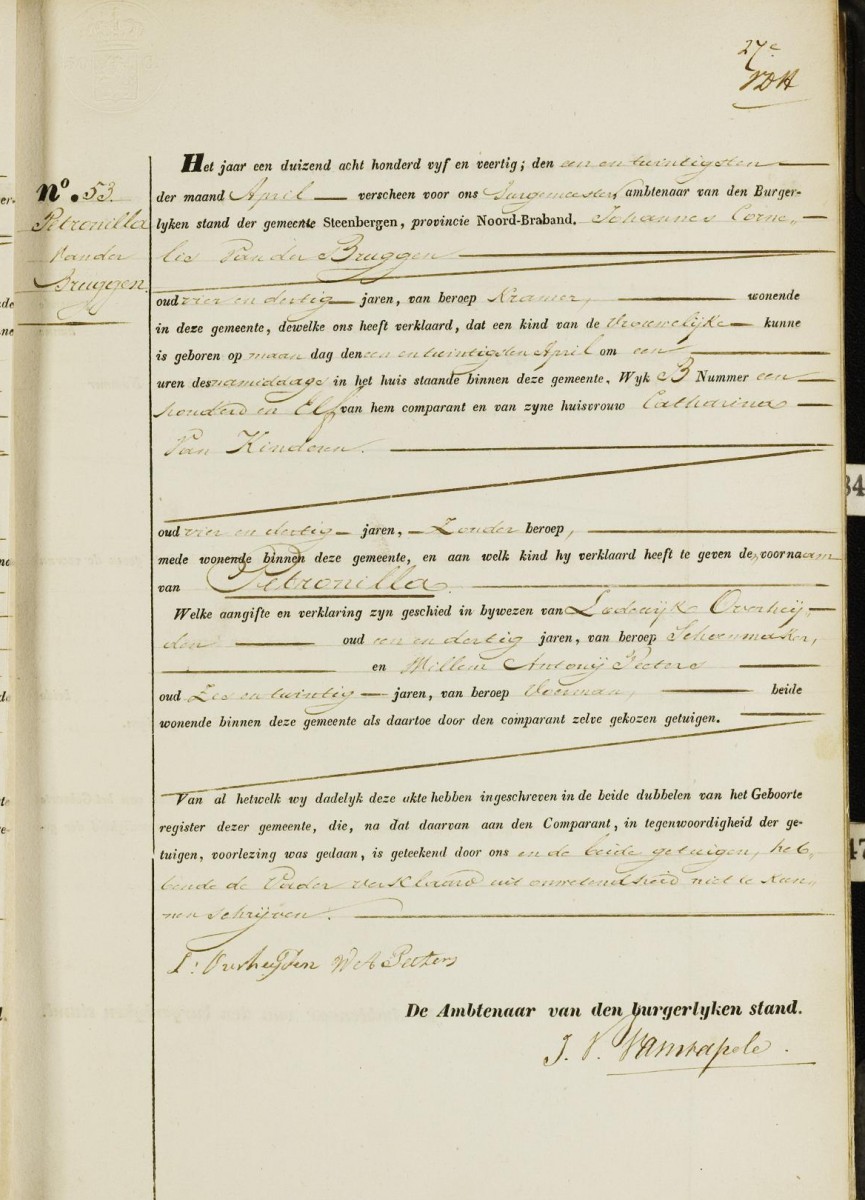 27e
VDH
No. 53.
Petronilla
Vander
Bruggen.
Het jaar een duizend acht honderd vyf en veertig; den een en twintigsten
der maand April verscheen voor ons Burgemeester, ambtenaar van den Burger-
lyken stand der gemeente Steenbergen, provincie Noord-Braband. Johannes Corne-
lis Van der Bruggen
oud vier en dertig jaren, van beroep Kramer, wonende
in deze gemeente, dewelke ons heeft verklaard, dat een kind van de Vrouwelijke kunne
is geboren op maan dag den een en twintigsten April om een
uren des namiddags in het huis staande binnen deze gemeente, Wyk B Nummer een
honderd en Elf van hem comparant en van zyne huisvrouw Catharina
Van Kinderen.
oud vier en dertig jaren, Zonder beroep,
mede wonende binnen deze gemeente, en aan welk kind hy verklaard heeft te geven de, voornaam
van Petronilla.
Welke aangifte en verklaring zyn geschied in bywezen van Lodewijk Overheij-
den oud een en dertig jaren, van beroep Schoenmaker,
en Willem Antonij Peeters
oud Zes en twintig jaren, van beroep Voerman, beide
wonende binnen deze gemeente als daartoe door den comparant zelve gekozen getuigen.
Van al hetwelk wy dadelyk deze akte hebben ingeschreven in de beide dubbelen van het Geboorte
register dezer gemeente, die, na dat daarvan aan den Comparant, in tegenwoordigheid der ge-
tuigen, voorlezing was gedaan, is geteekend door ons en de beide getuigen, heb-
bende de Vader verklaard uit onwetendheid niet te kun-
nen schrijven.
L: Overheijden W A Peeters
De Ambtenaar van den burgerlyken stand.
J. V.